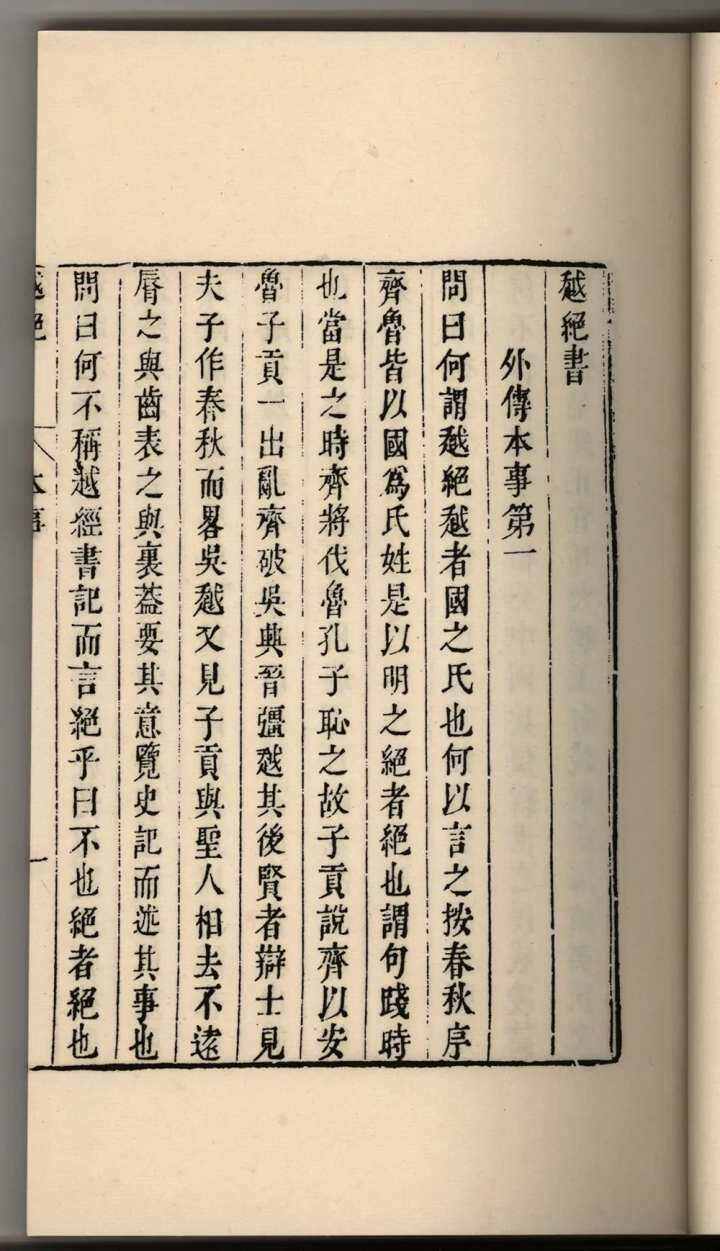 越絕書
外傳本事第一
問曰何謂越絕越者國之氏也何以言之按春秋序
齊魯皆以國爲氏姓是以明之絕者絕也謂句踐時
也當是之時齊將伐魯孔子恥之故子貢說齊以安
魯子貢一出亂齊破吳興晉彊越其後賢者辯士見
夫子作春秋而畧吳越又見子貢與聖人相去不遠
脣之與齒表之與裏葢要其意覽史記而述其事也
問曰何不稱越經書記而言絕乎曰不也絕者絕也
越絕 本事 一